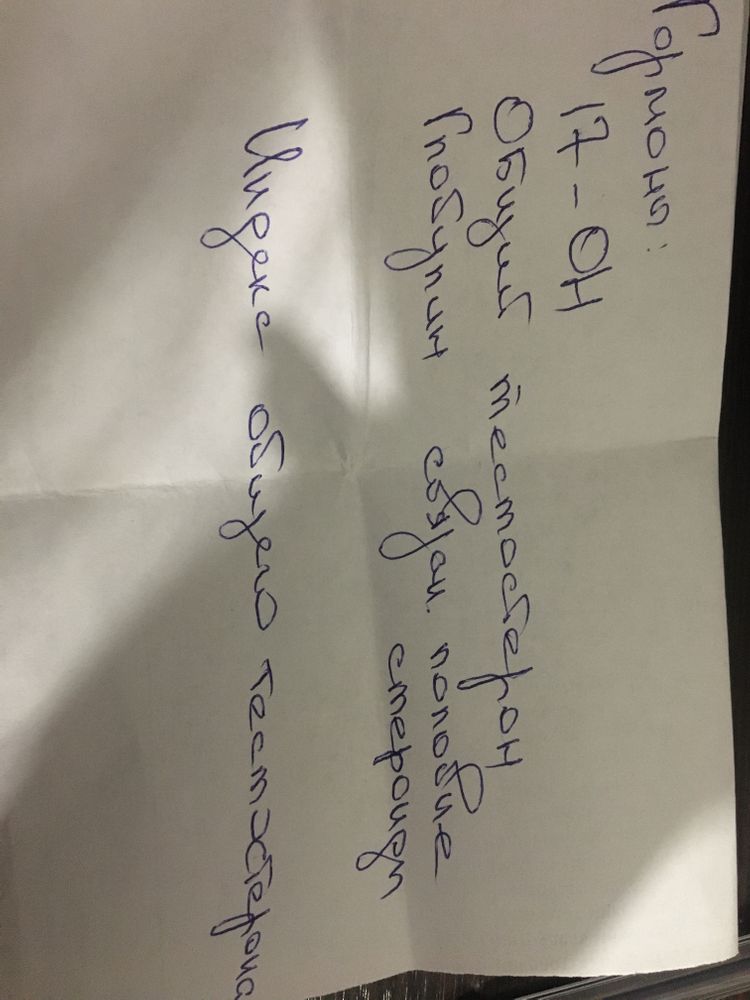 Гормоны:
17-ОН
Общий тестостерон
Глобулин связан. половые
стероиды
Индекс общего тестостерона